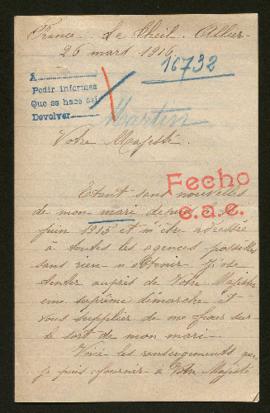 France. Le Theil. Allier.
26 mars 1916
16732
A
Pedir informes
Que se hace así
Devolver
Martin
Votre Majesté.
Fecho
e.a.e.
Étant sans nouvelles
de mon mari depuis
juin 1915 et m'être adressée
à toutes les agences possibles
sans rien obtenir. Je viens
tenter auprès de Votre Majesté
une suprême démarche et
vous supplier de me fixer sur
le sort de mon mari.
Voici les renseignements que
je puis fournir à Votre Majesté